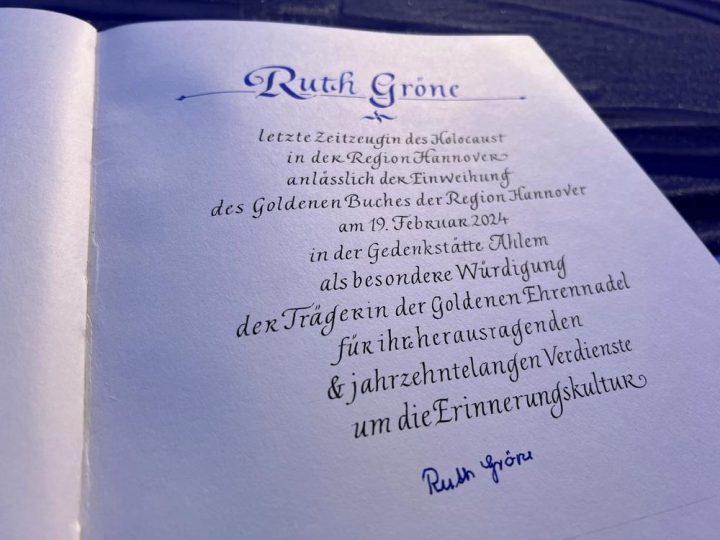 Ruth Gröne
letzte Zeitzeugin des Holocaust
in der Region Hannover
anlässlich der Einweihung
des Goldenen Buches der Region Hannover
am 19. Februar 2024
in der Gedenkstätte Ahlem
als besondere Würdigung
der Trägerin der Goldenen Ehrennadel
für ihre herausragenden
& jahrzehntelangen Verdienste
um die Erinnerungskultur
Ruth Gröne